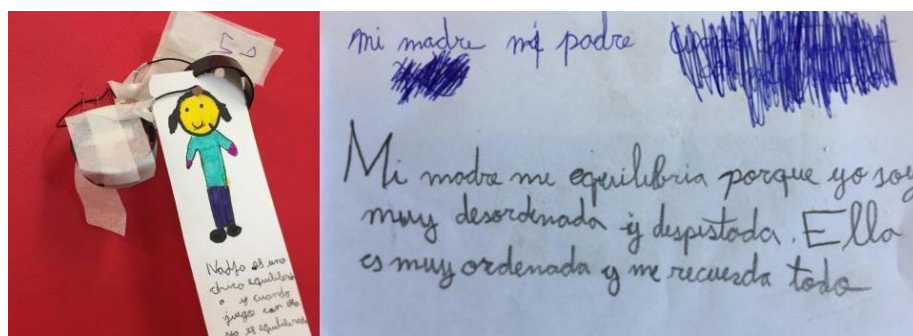 Nadja es una
chica equilibri
a y cuando
juego con ella
yo es equilibrad
mi madre mi padre
Mi madre me equilibria porque yo soy
muy desordenada y despistada. Ella
es muy ordenada y me recuerda todo